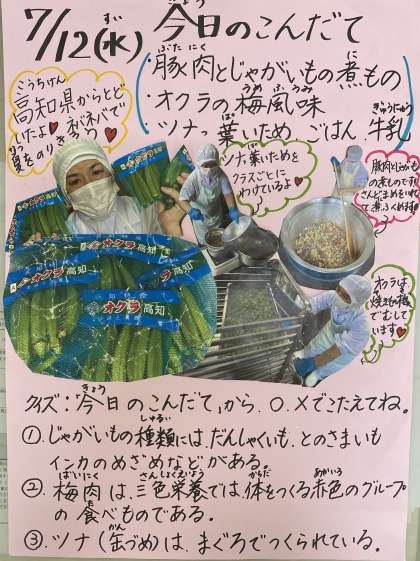 7/12(水) 今日のこんだて
豚肉とじゃがいもの煮もの
オクラの梅風味
ツナっ葉いため ごはん 牛乳
高知県からとど
いたよ♥ネバネバで
夏をのりきろう♥
ツナっ葉いためを
クラスごとに
わけているよ♥
豚肉とじゃがいも
の煮ものです!
オクラは
焼きもの機
でむして
います♥
オクラ 高知
オクラ 高知
オクラ 高知
クイズ:「今日のこんだて」から、○、×でこたえてね。
①.じゃがいもの種類には、だんしゃくいも、とのさまいも
インカのめざめなどがある。
②.梅肉は、三色栄養では、体をつくる赤色のグループ
の食べものである。
③.ツナ(缶づめ)は、まぐろでつくられている。